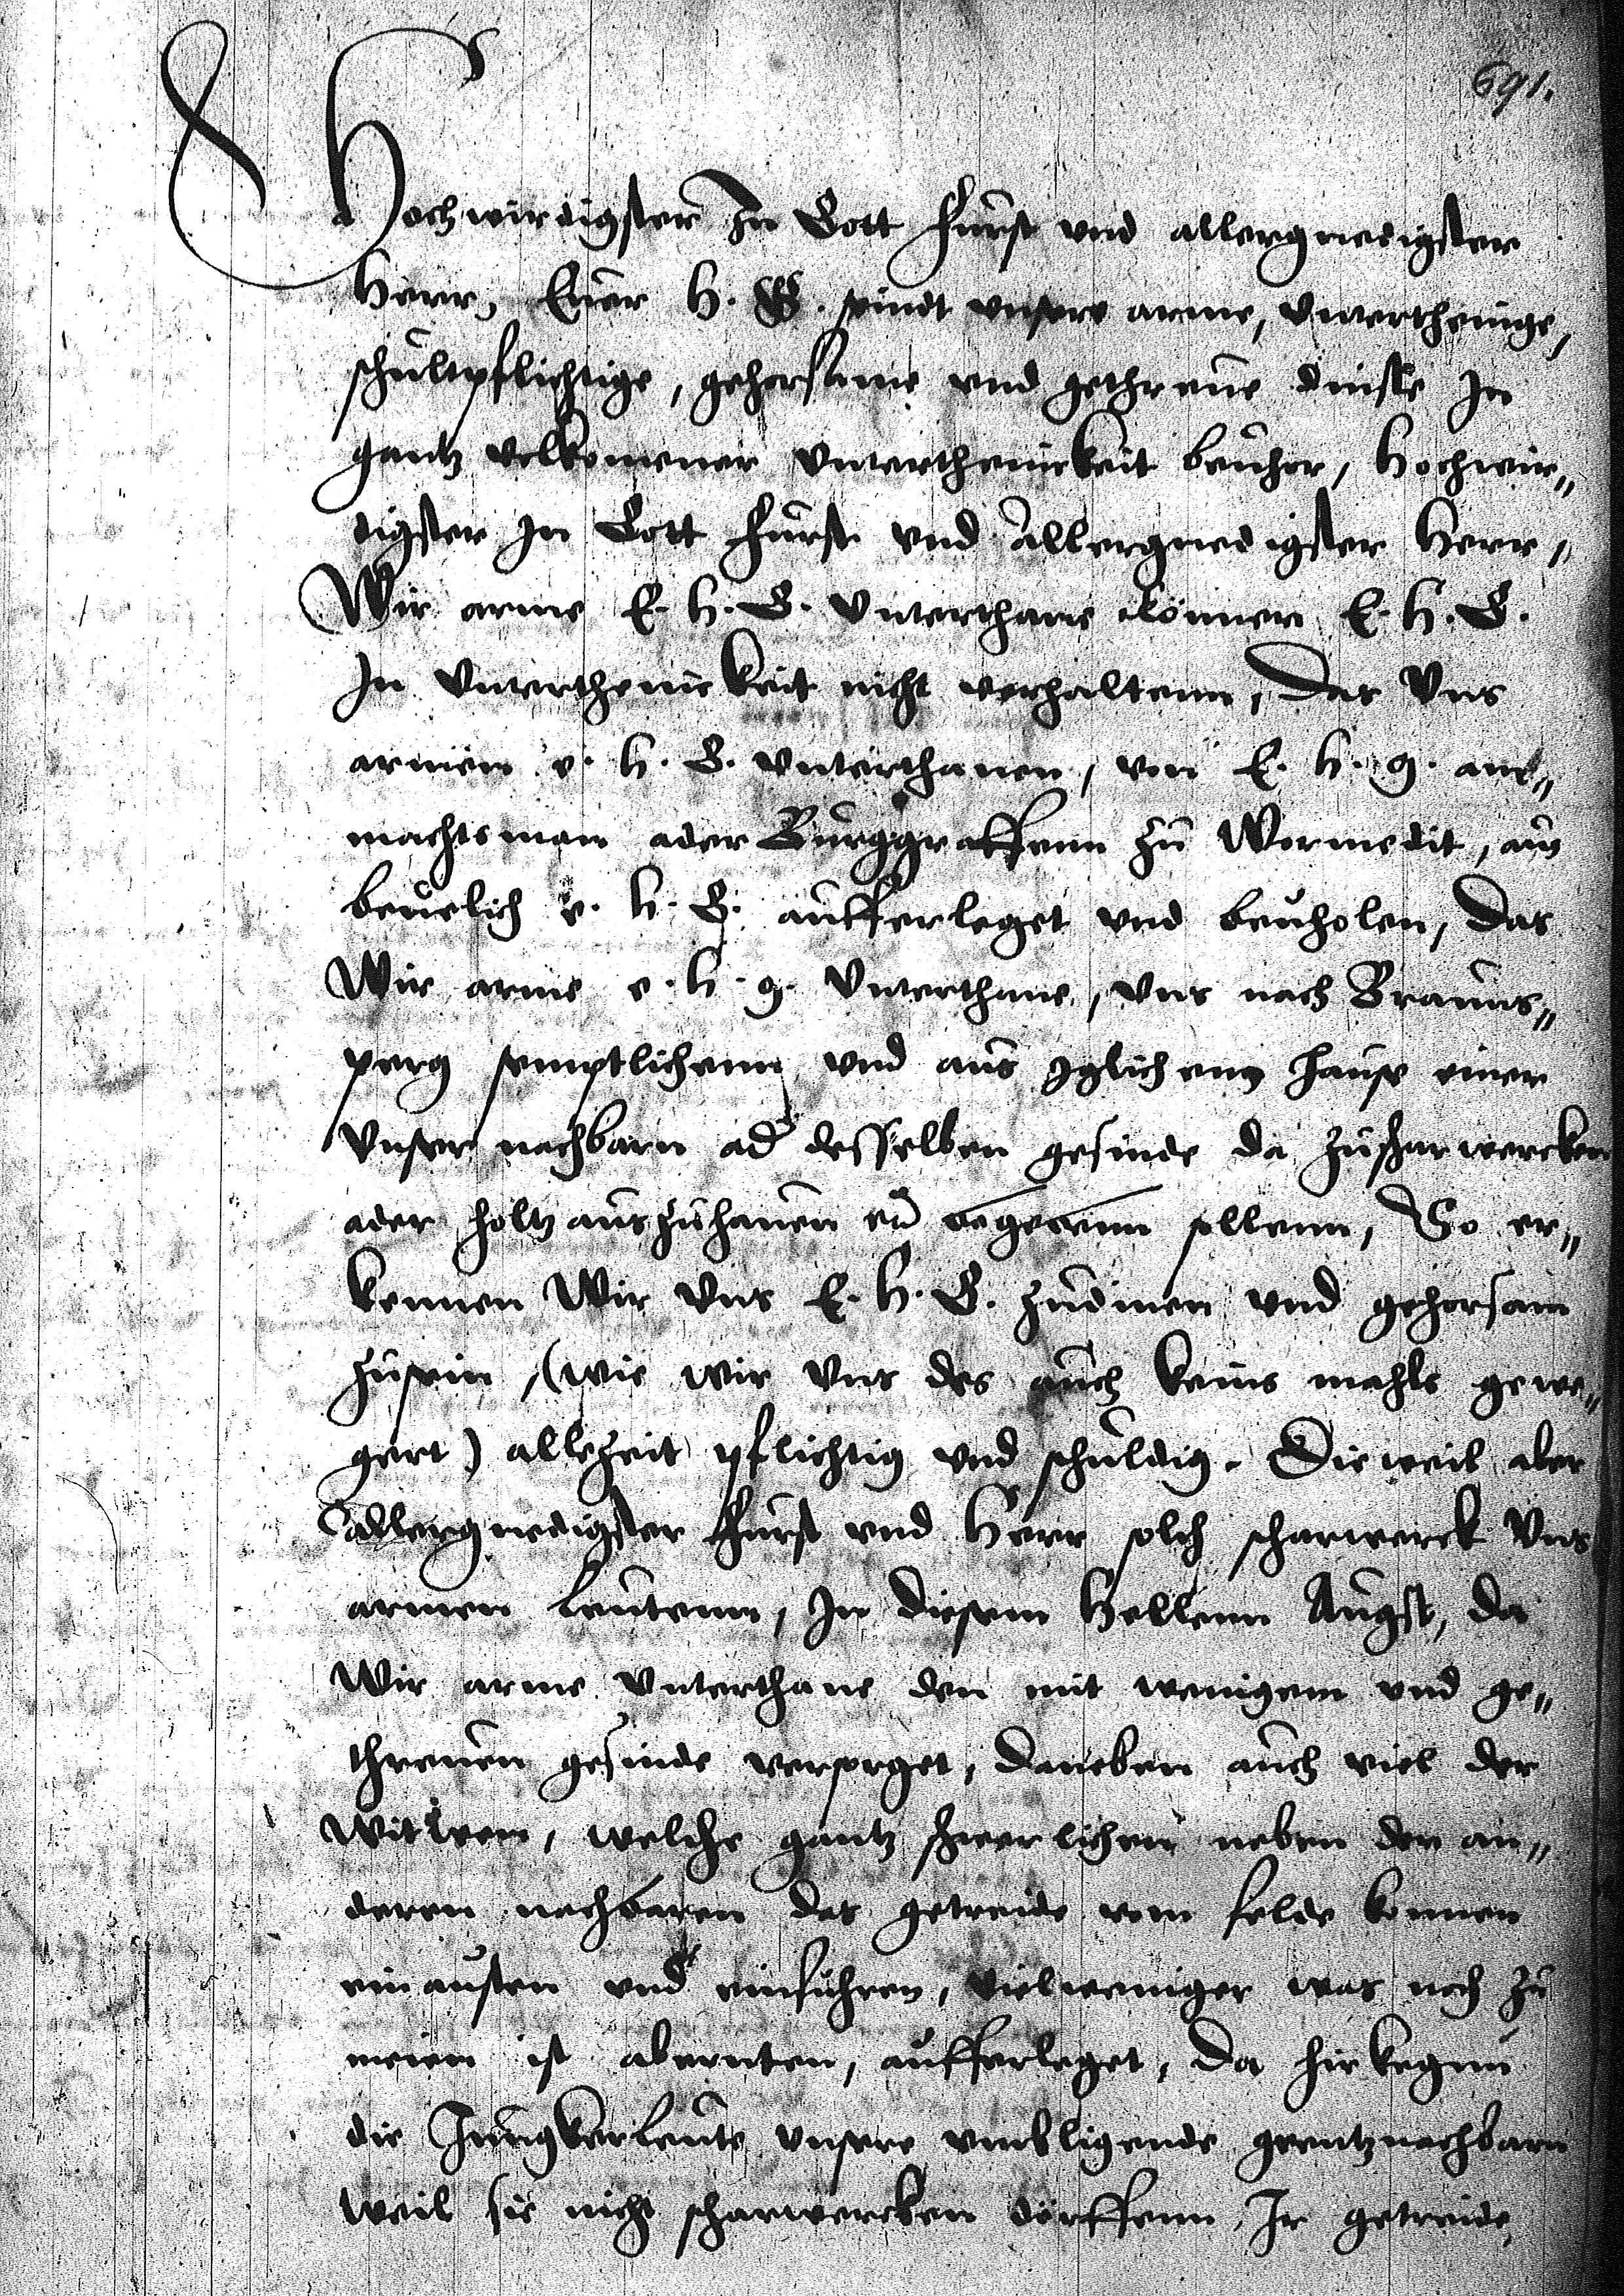 691.
Hochwirdigster In Gott Furst vnd allergnedigster
Herr, Euer H. G. seindt vnsere arme, vnterthenige,
schultpflichtige, gehorsame vnd gethreue dinste In
gantz volkomener vnterthenickeit beuhor, Hochwir„
digster In Gott Furst vnd allergnedigster Herr,
Wir arme E. H. G. Vnterthane können E. H. G.
In vnterthenickeit nicht verhaltenn, Das Vns
armen e. H. G. vnterthanen, von E. H. g. am„
machtsman ader Burggraffenn zu Wormedit, aus
beuelich e. H. G. aufferleget vnd beuholen, Das
Wir arme e. H. g. Vnterthane, vns nach Brauns„
perg semptlichenn vnd aus Iglichem Hause einer
Vnser nachbarn ad desselben gesinde da zuscharwercken
ader holtz aus zuhauen begeben sollenn, So er„
kennen Wir Vns E. H. G. zudinen vnd gehorsam
zusein, (wie wir Vns des auch keins mahls gewe„
gert) allezeit pflichtig vnd schuldig. Die weil aber
allergnedigster Furst vnd Herr solch scharwerck Vns
armen leutenn, In diesem Hellenn Augst, da
Wir arme vnterthane den mit wenigem vnd ge„
threuen gesinde versorget, daneben auch viel der
Witwen, welche gantz schwerlichen neben den an„
deren nachbaren das getreide vom felde konnen
einausten vnd einfuhren, vielweniger was noch zu
meien ist abernten, aufferleget, Da hirkegenn
die Jungkerleute vnsere vmbligende grentznachbarn
weil sie nicht scharwercken dörffenn, Ir getreide,